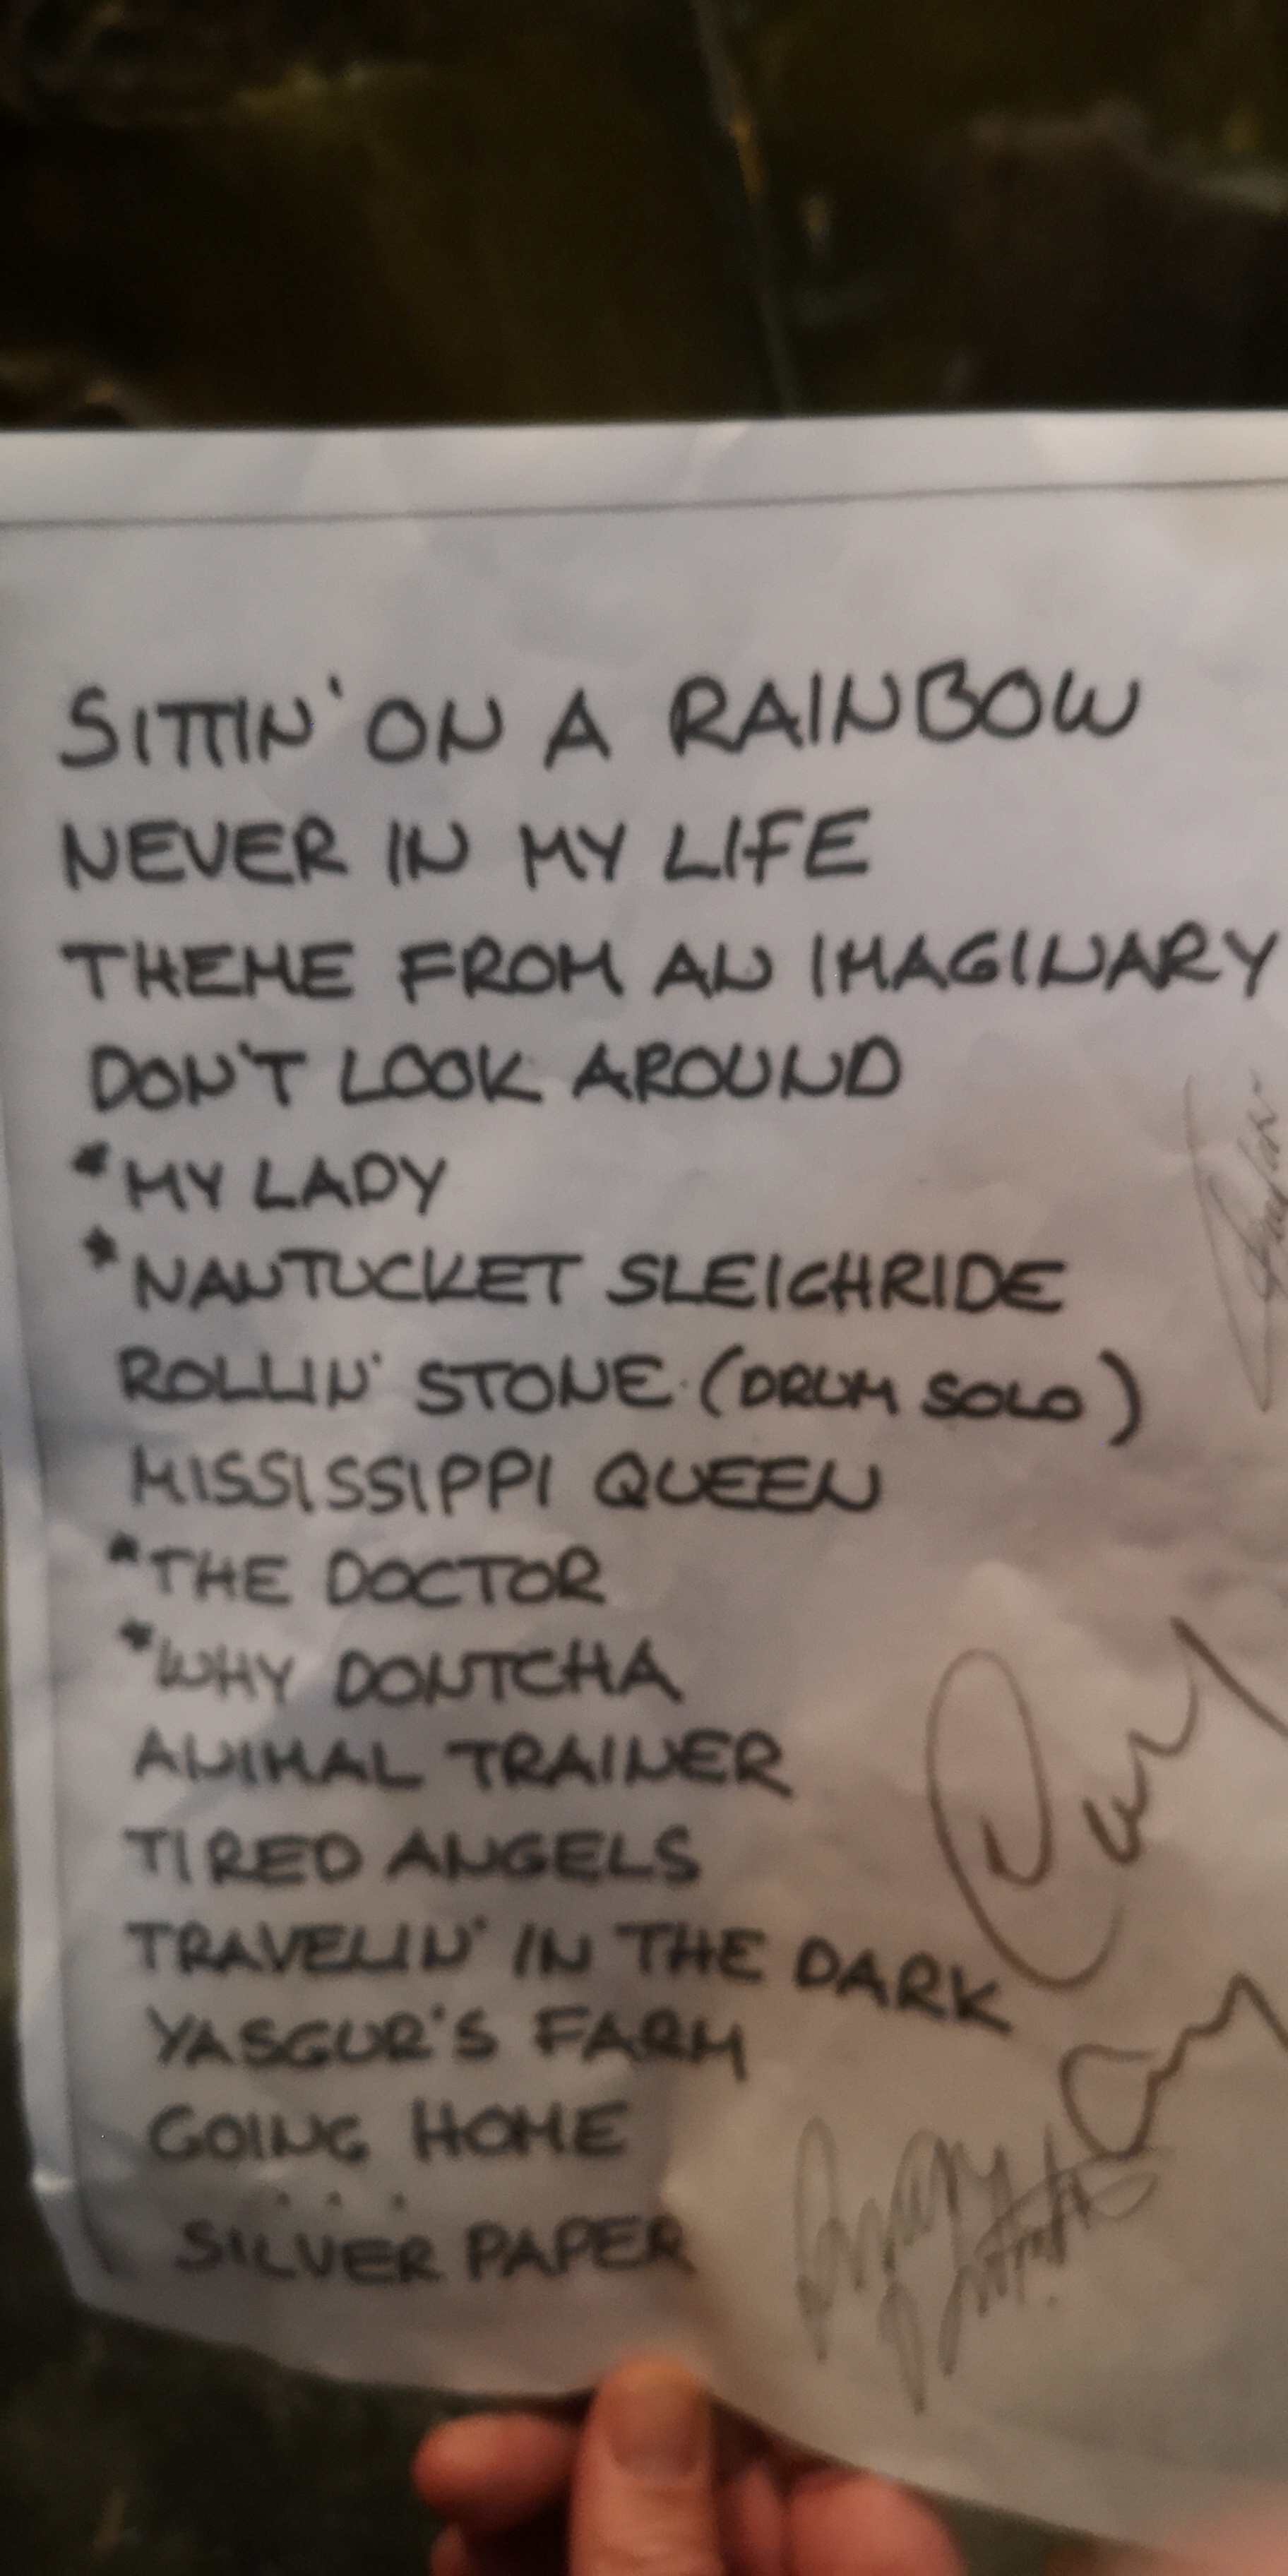 SITTIN' ON A RAINBOW
NEVER IN MY LIFE
THEME FROM AN IMAGINARY
DON'T LOOK AROUND
*MY LADY
*NANTUCKET SLEIGHRIDE
ROLLIN' STONE (DRUM SOLO)
MISSISSIPPI QUEEN
*THE DOCTOR
*WHY DONTCHA
ANIMAL TRAINER
TIRED ANGELS
TRAVELIN' IN THE DARK
YASGUR'S FARM
GOING HOME
...
SILVER PAPER